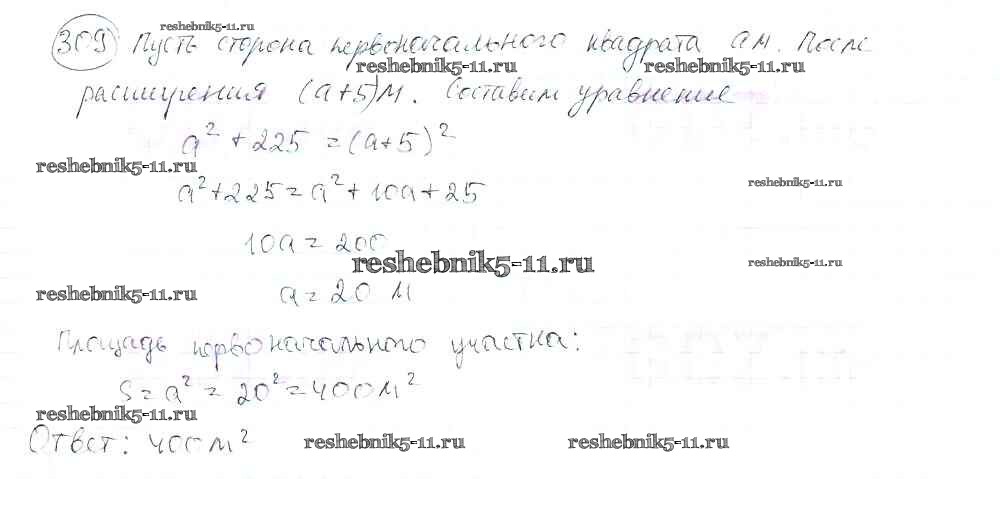 reshebnik5-11.ru
309 Пусть сторона первоначального квадрата a м. После
reshebnik5-11.ru reshebnik5-11.ru
расширения (a+5)м. Составим уравнение
a² + 225 = (a+5)²
reshebnik5-11.ru
a²+225=a²+10a+25 reshebnik5-11.ru
10a = 200
reshebnik5-11.ru reshebnik5-11.ru
reshebnik5-11.ru a = 20 м
Площадь первоначального участка:
S = a² = 20² = 400 м²
reshebnik5-11.ru
Ответ: 400 м² reshebnik5-11.ru reshebnik5-11.ru